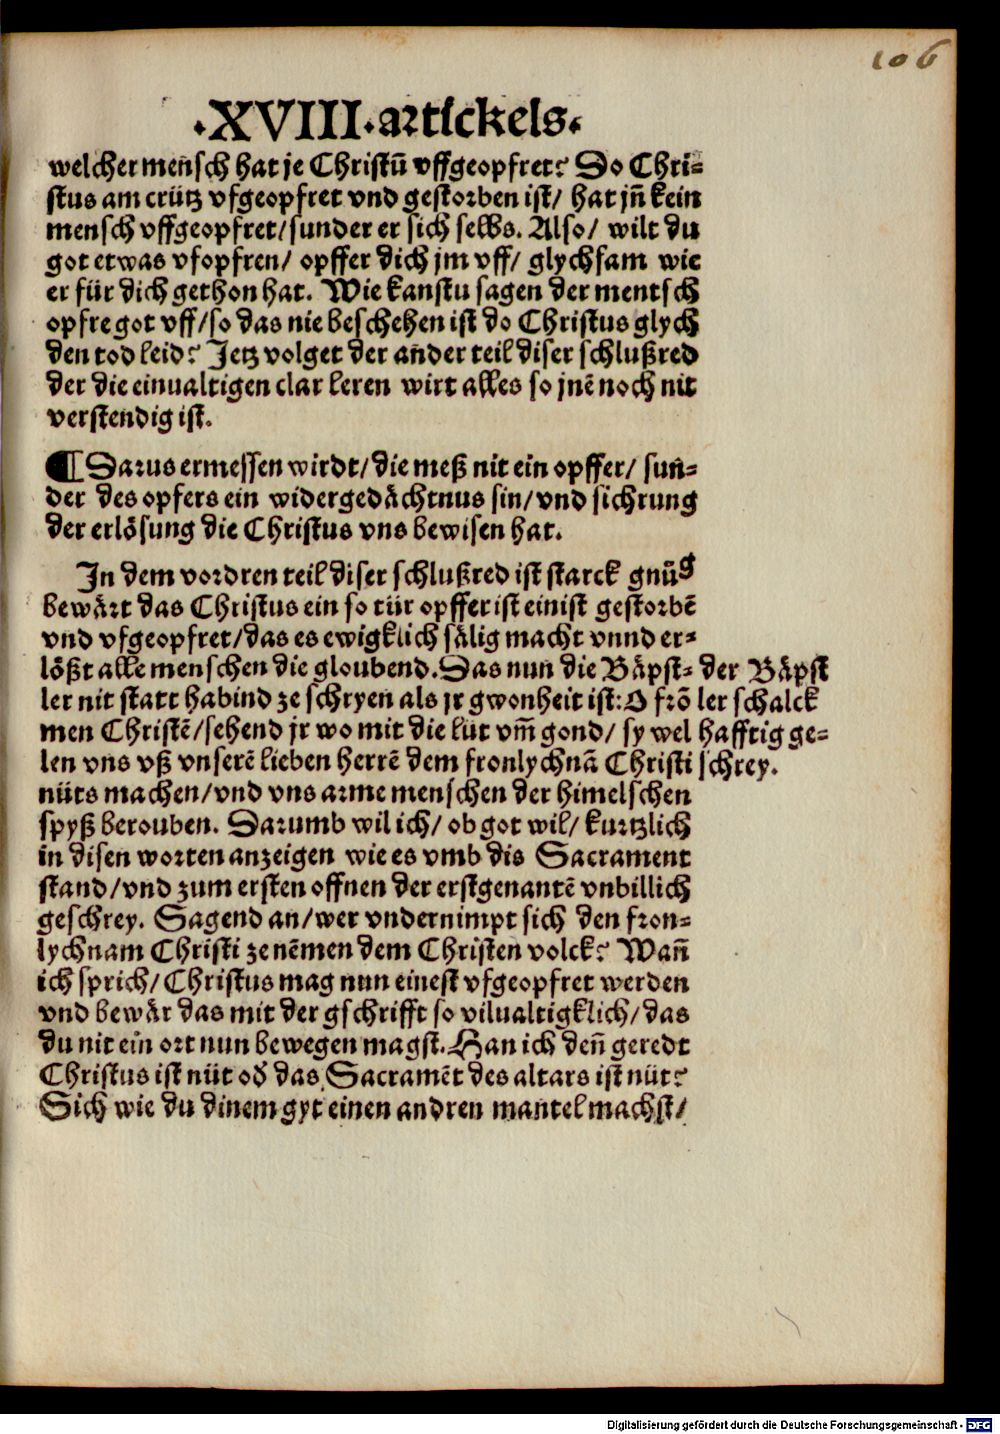 106
·XVIII·artickels·
welcher mensch hat je Christū vffgeopfret? Do Chri-
stus am crütz vfgeopfret vnd gestorben ist/ hat jn̄ kein
mensch vffgeopfret/sunder er sich selbs. Also/ wilt du
got etwas vfopfren/ opffer dich jm vff/ glychsam wie
er für dich gethon hat. Wie kanstu sagen der mentsch
opfre got vff/so das nie beschehen ist do Christus glych
den tod leid? Jetz volget der ander teil diser schlußred
der die einualtigen clar leren wirt alles so jnē noch nit
verstendig ist.
¶ Darus ermessen wirdt/die meß nit ein opffer/ sun-
der des opfers ein widergedächtnus sin/vnd sichrung
der erlösung die Christus vns bewisen hat.
In dem vordren teil diser schlußred ist starck gnůg
bewärt das Christus ein so tür opffer ist einist gestorbē
vnd vfgeopfret/das es ewigklich sälig macht vnnd er-
lößt alle menschen die gloubend. Das nun die Bäpst-
ler nit statt habind ze schryen als jr gwonheit ist: O frō
men Christē/sehend jr wo mit die lüt vm̄ gond/ sy wel
len vns vß vnserē lieben herrē dem fronlychnā Christi
nüts machen/vnd vns arme menschen der himelschen
spyß berouben. Darumb wil ich/ ob got wil/ kurtzlich
in disen worten anzeigen wie es vmb dis Sacrament
stand/vnd zum ersten offnen der erstgenantē vnbillich
geschrey. Sagend an/wer vndernimpt sich den fron-
lychnam Christi ze nēmen dem Christen volck? Wan̄
ich sprich/ Christus mag nun einest vfgeopfret werden
vnd bewär das mit der gschrifft so vilualtigklich/das
du nit ein ort nun bewegen magst. Han ich den̄ geredt
Christus ist nüt od̕ das Sacramēt des altars ist nüt?
Sich wie du dinem gyt einen andren mantel machst/
der Bäpst
ler schalck
hafftig ge-
schrey.
Digitalisierung gefördert durch die Deutsche Forschungsgemeinschaft - DFG